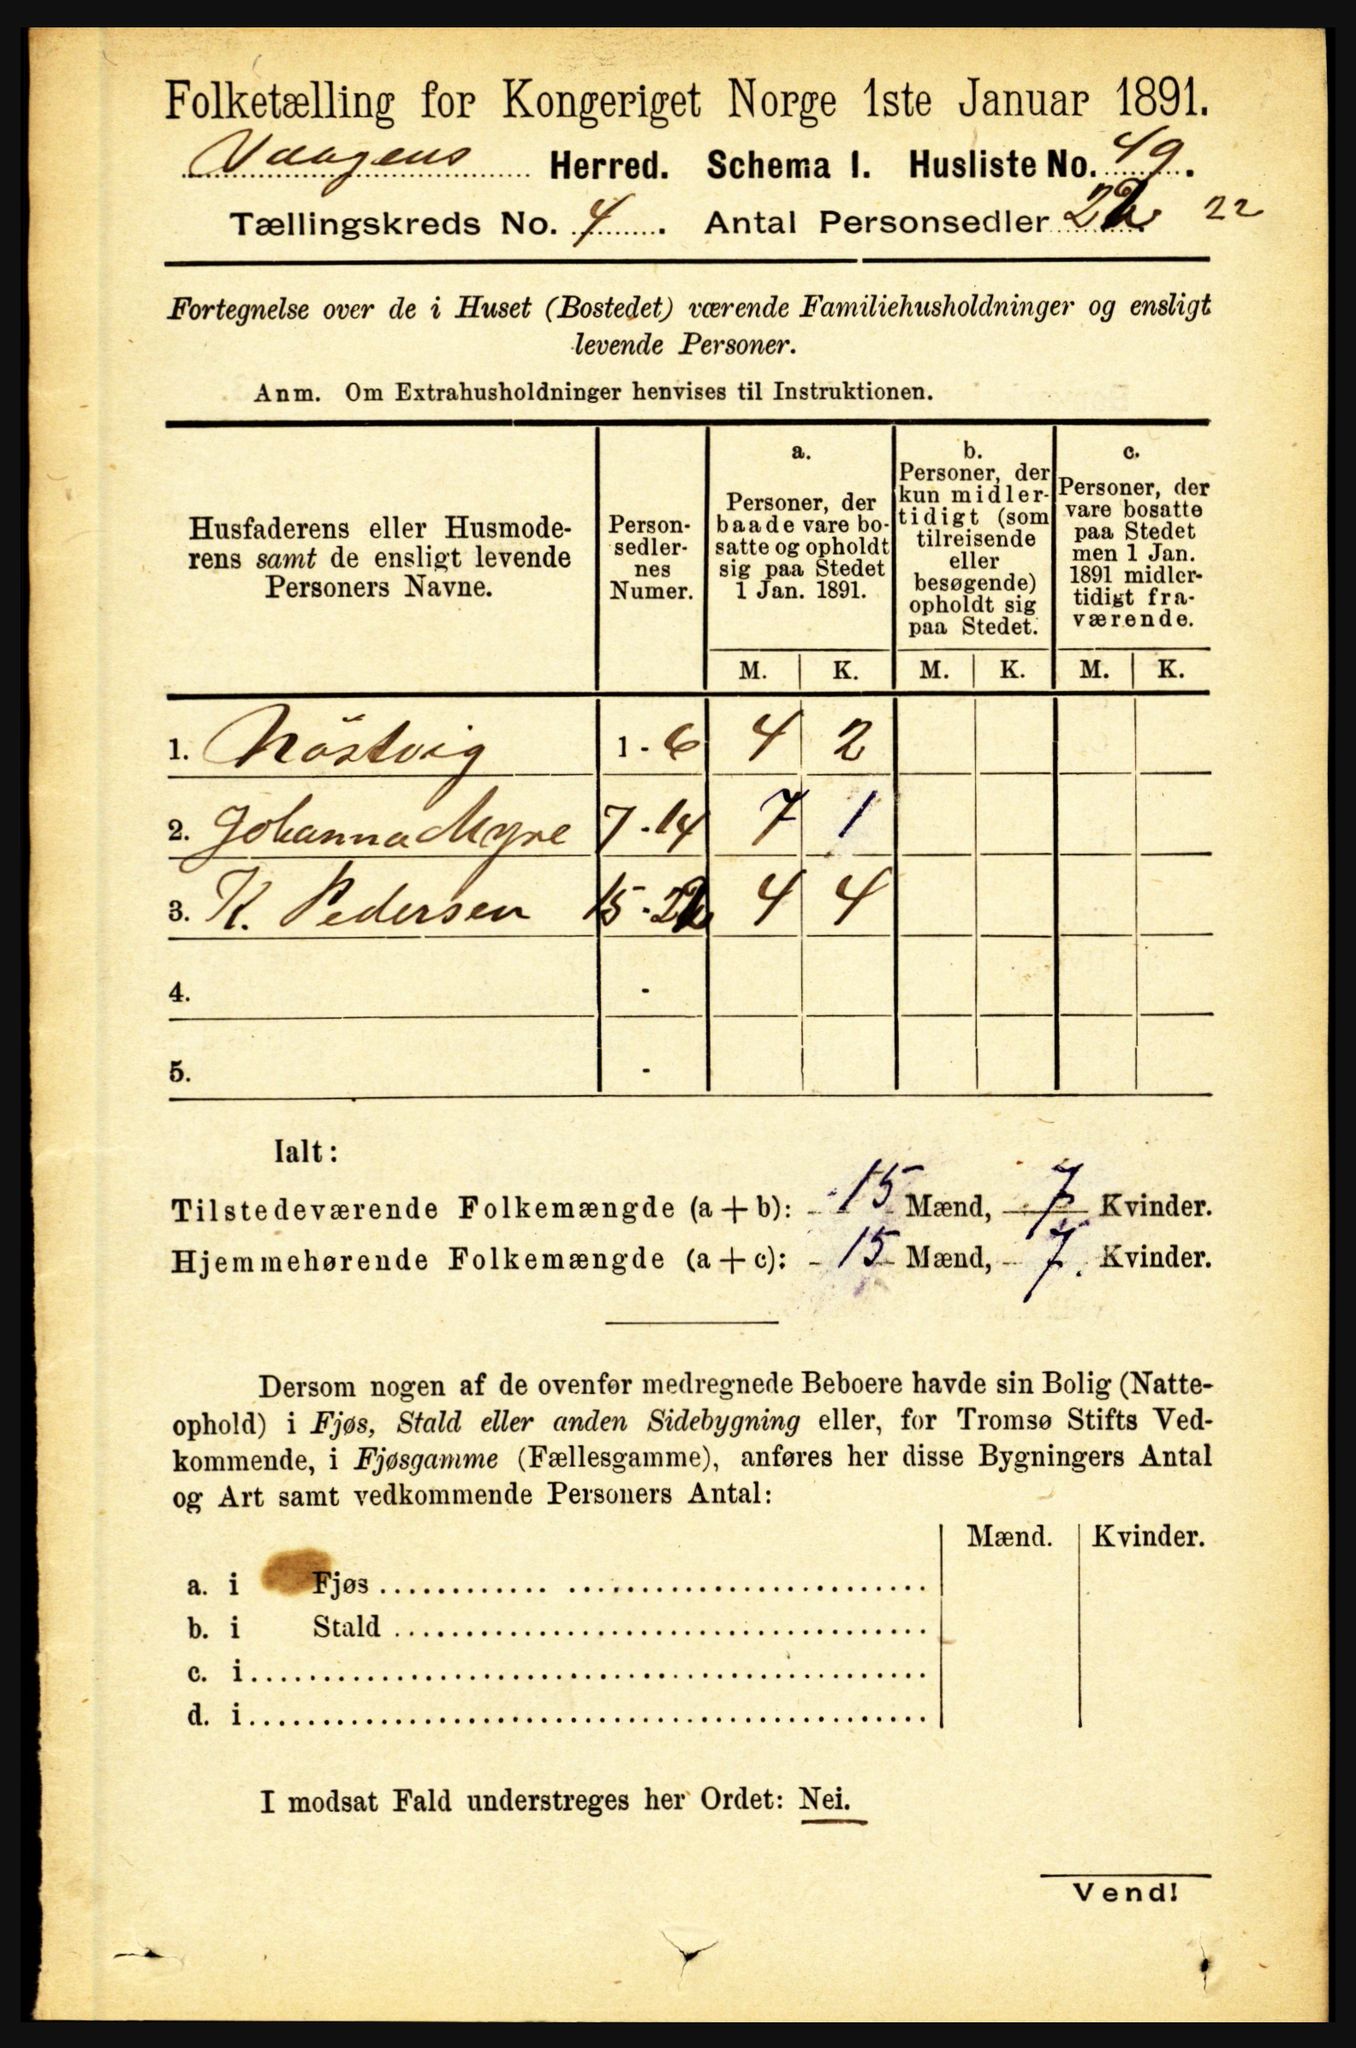 Folketælling for Kongeriget Norge 1ste Januar 1891.
Vaagens Herred. Schema I. Husliste No. 49.
Tællingskreds No. 4. Antal Personsedler 22 22
Fortegnelse over de i Huset (Bostedet) værende Familiehusholdninger og ensligt
levende Personer.
Anm. Om Extrahusholdninger henvises til Instruktionen.
Husfaderens eller Husmode-
rens samt de ensligt levende
Personers Navne.
Person-
sedler-
nes
Numer.
a.
Personer, der
baade vare bo-
satte og opholdt
sig paa Stedet
1 Jan. 1891.
b.
Personer, der
kun midler-
tidigt (som
tilreisende
eller
besøgende)
opholdt sig
paa Stedet.
c.
Personer, der
vare bosatte
paa Stedet
men 1 Jan.
1891 midler-
tidigt fra-
værende.
M. K. M. K. M. K.
1. Nöstvig 1 - 6 4 2
2. Johanna Myre 7 - 14 7 1
3. K. Pedersen 15 - 22 4 4
4. -
5. -
Ialt:
Tilstedeværende Folkemængde (a + b): 15 Mænd, 7 Kvinder.
Hjemmehørende Folkemængde (a + c): 15 Mænd, 7. Kvinder.
Dersom nogen af de ovenfor medregnede Beboere havde sin Bolig (Natte-
ophold) i Fjøs, Stald eller anden Sidebygning eller, for Tromsø Stifts Ved-
kommende, i Fjøsgamme (Fællesgamme), anføres her disse Bygningers Antal
og Art samt vedkommende Personers Antal:
Mænd. Kvinder.
a. i Fjøs
b. i Stald
c. i
d. i
I modsat Fald understreges her Ordet: Nei.
Vend!